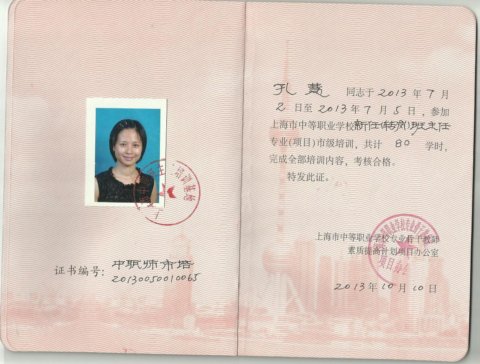 证书编号：中职师市培
20130050010065
孔慧 同志于2013年7月
2日至2013年7月5日，参加
上海市中等职业学校新任(转岗)班主任
专业(项目)市级培训，共计 80 学时，
完成全部培训内容，考核合格。
特发此证。
上海市中等职业学校专业骨干教师
素质提高计划项目办公室
2013年10月10日